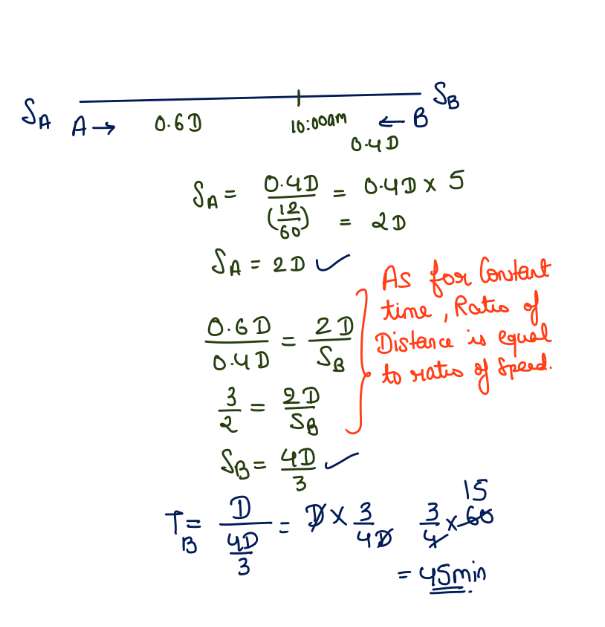 S_A A → 0.6D 10:00am ← B S_B
0.4D
S_A = 0.4D/(12/60) = 0.4D × 5
= 2D
S_A = 2D ✓
0.6D/0.4D = 2D/S_B
3/2 = 2D/S_B
S_B = 4D/3 ✓
As for Constant
time, Ratio of
Distance is equal
to ratio of Speed.
T_B = D/(4D/3) = D × 3/4D 3/4 × 60 15
= 45min